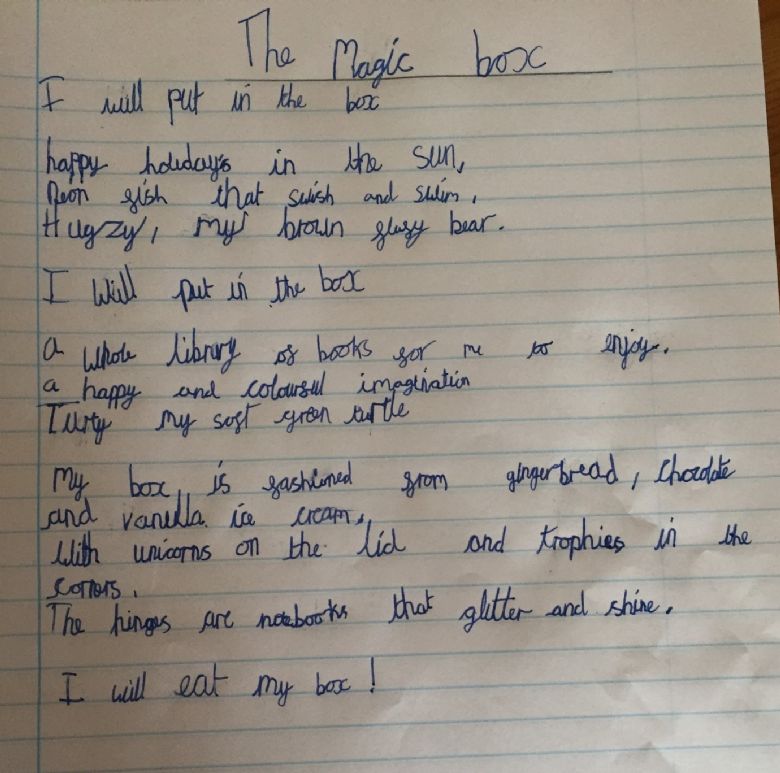 The Magic box
I will put in the box
happy holidays in the sun,
Neon fish that swish and swim,
Hugzy, my brown fluzy bear.
I will put in the box
a whole library of books for me to enjoy.
a happy and colourful imagination
Turty my soft green turtle
My box is fashioned from gingerbread, chocolate
and vanilla ice cream,
With unicorns on the lid and trophies in the
corners.
The hinges are notebooks that glitter and shine.
I will eat my box!